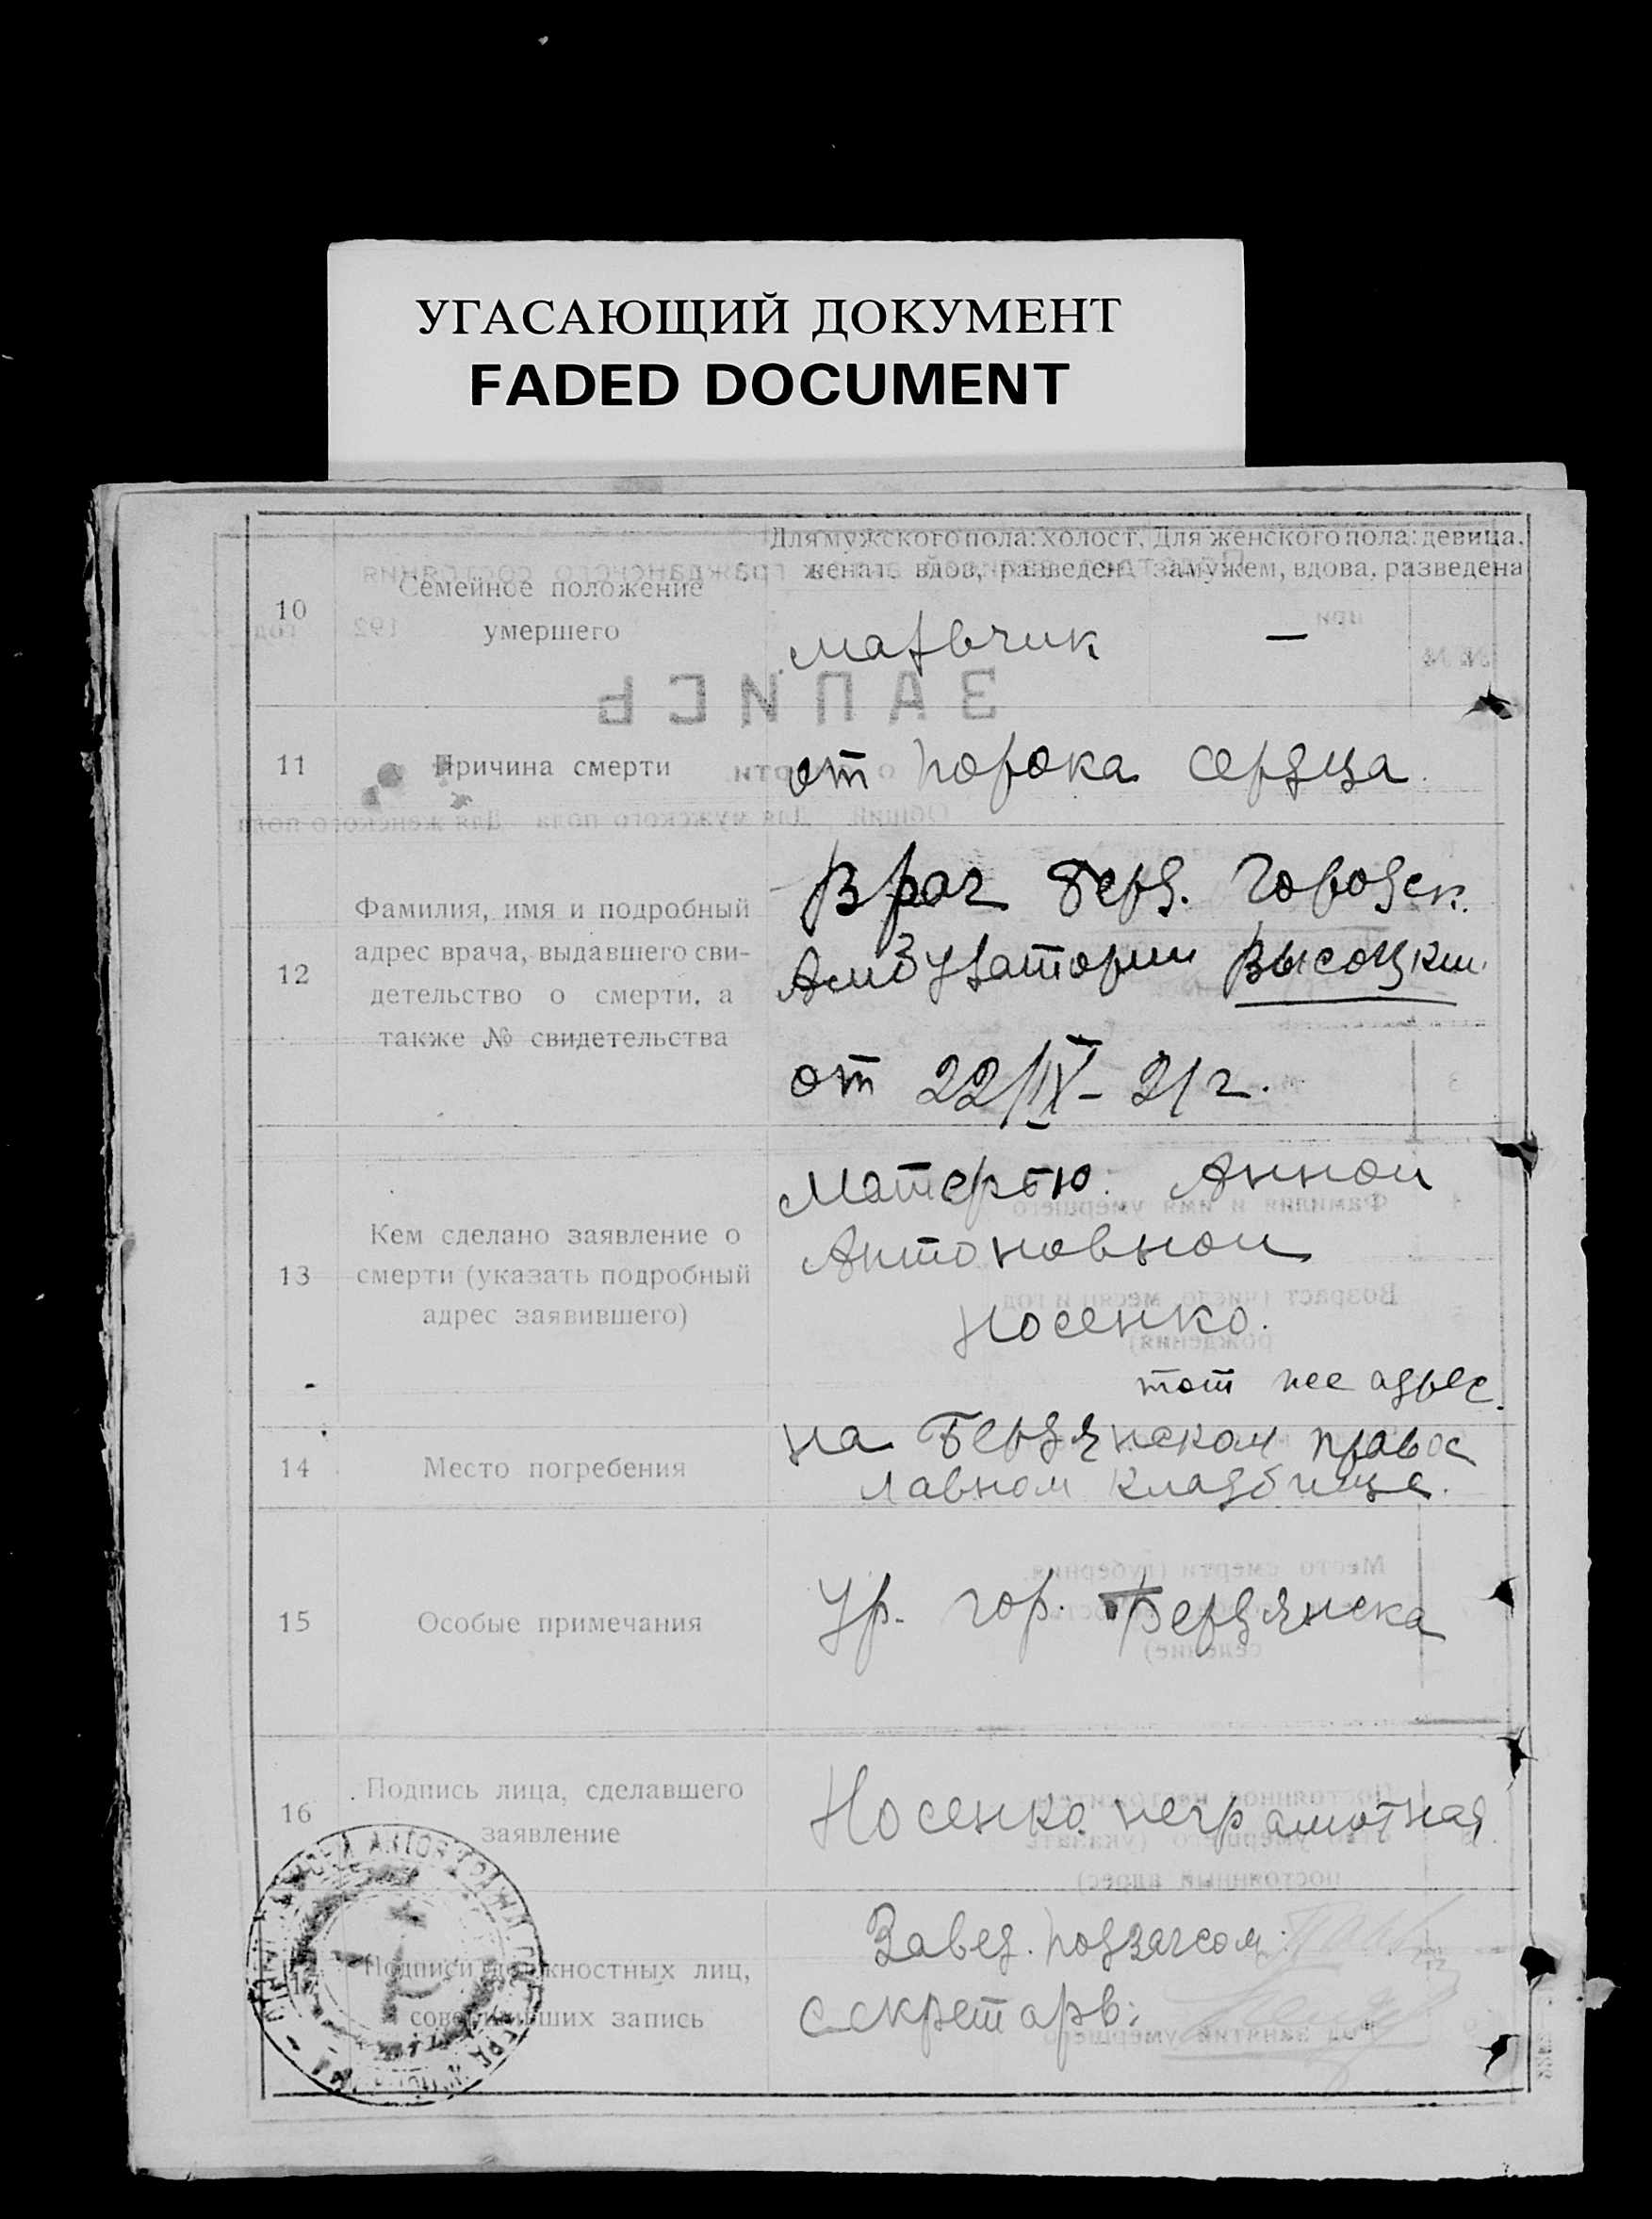 УГАСАЮЩИЙ ДОКУМЕНТ
FADED DOCUMENT
Для мужского пола: холост, женат, вдов, разведен
Для женского пола: девица, замужем, вдова, разведена
10
Семейное положение
умершего
мальчик
—
ЗАПИСЬ
11
Причина смерти
от порока сердца.
12
Фамилия, имя и подробный
адрес врача, выдавшего сви-
детельство о смерти, а
также № свидетельства
Врач Берд. Городск.
Амбулатории Высоцкий
от 22/IX - 21 г.
13
Кем сделано заявление о
смерти (указать подробный
адрес заявившего)
Матерью: Анной
Антоновной
Носенко.
тот же адрес.
14
Место погребения
на Бердянском правос
лавном кладбище.
15
Особые примечания
Ур. гор. Бердянска
16
Подпись лица, сделавшего
заявление
Носенко неграмотная
17
Подписи должностных лиц,
совершивших запись
Завед. подзагсом:
секретарь: